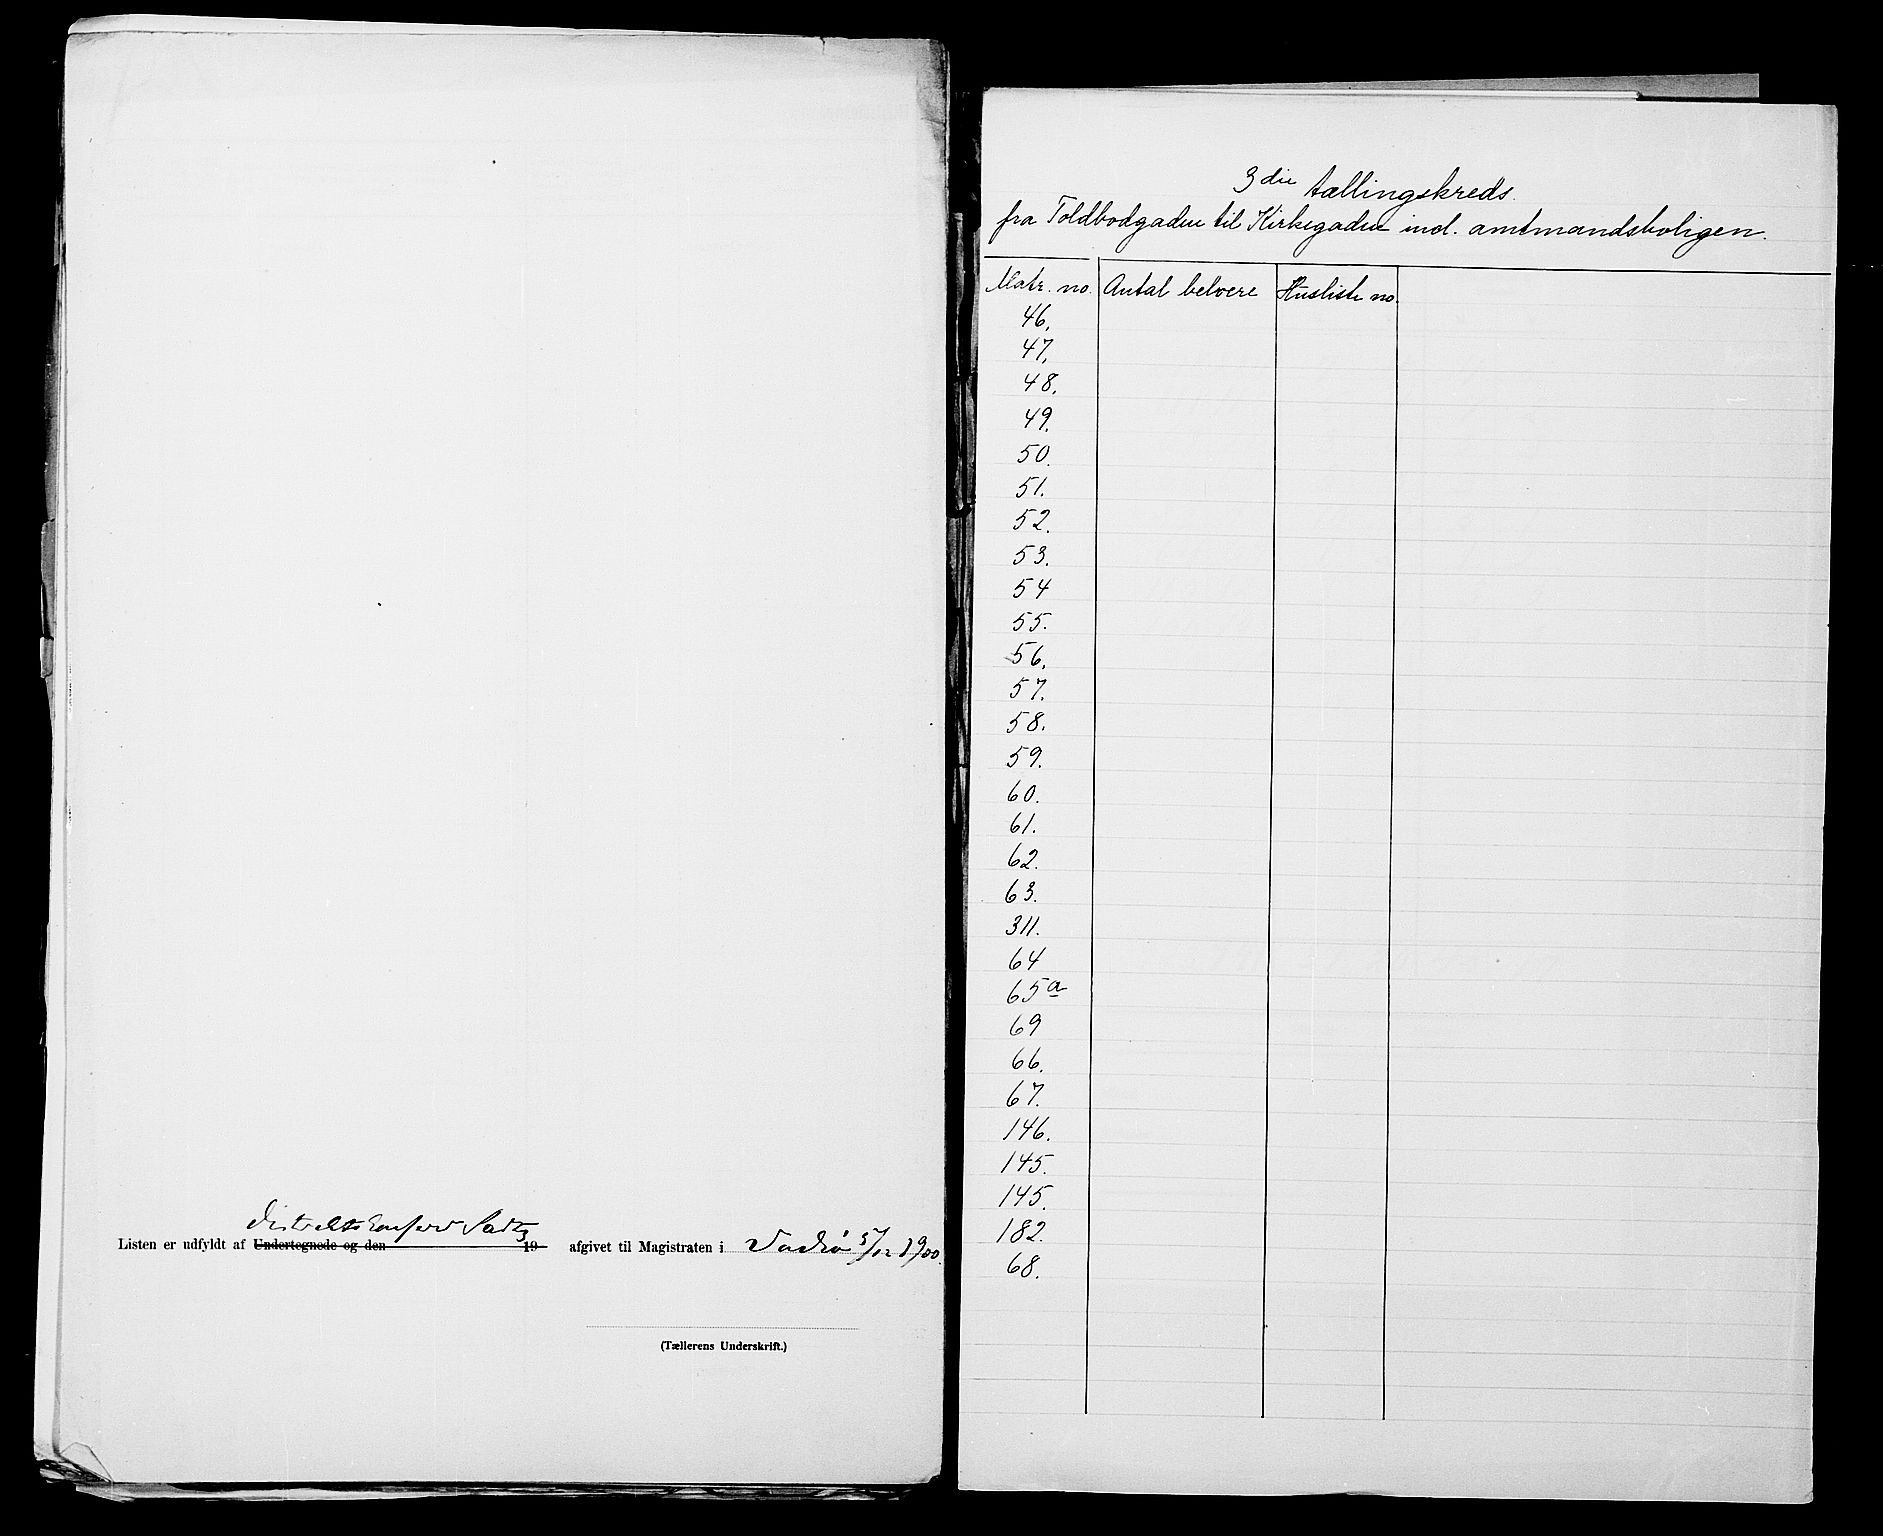 Listen er udfyldt af Undertegnede og den 19 afgivet til Magistraten i Vadsø 5/12 1900.
(Tællerens Underskrift.)
3die tællingskreds.
fra Toldbodgaden til Kirkegaden incl. amtmandsboligen.
Matr. no. Antal beboere Husliste no.
46.
47.
48.
49.
50.
51.
52.
53.
54
55.
56.
57.
58.
59.
60.
61.
62.
63.
311.
64
65a
69
66.
67.
146.
145.
145.
182.
68.